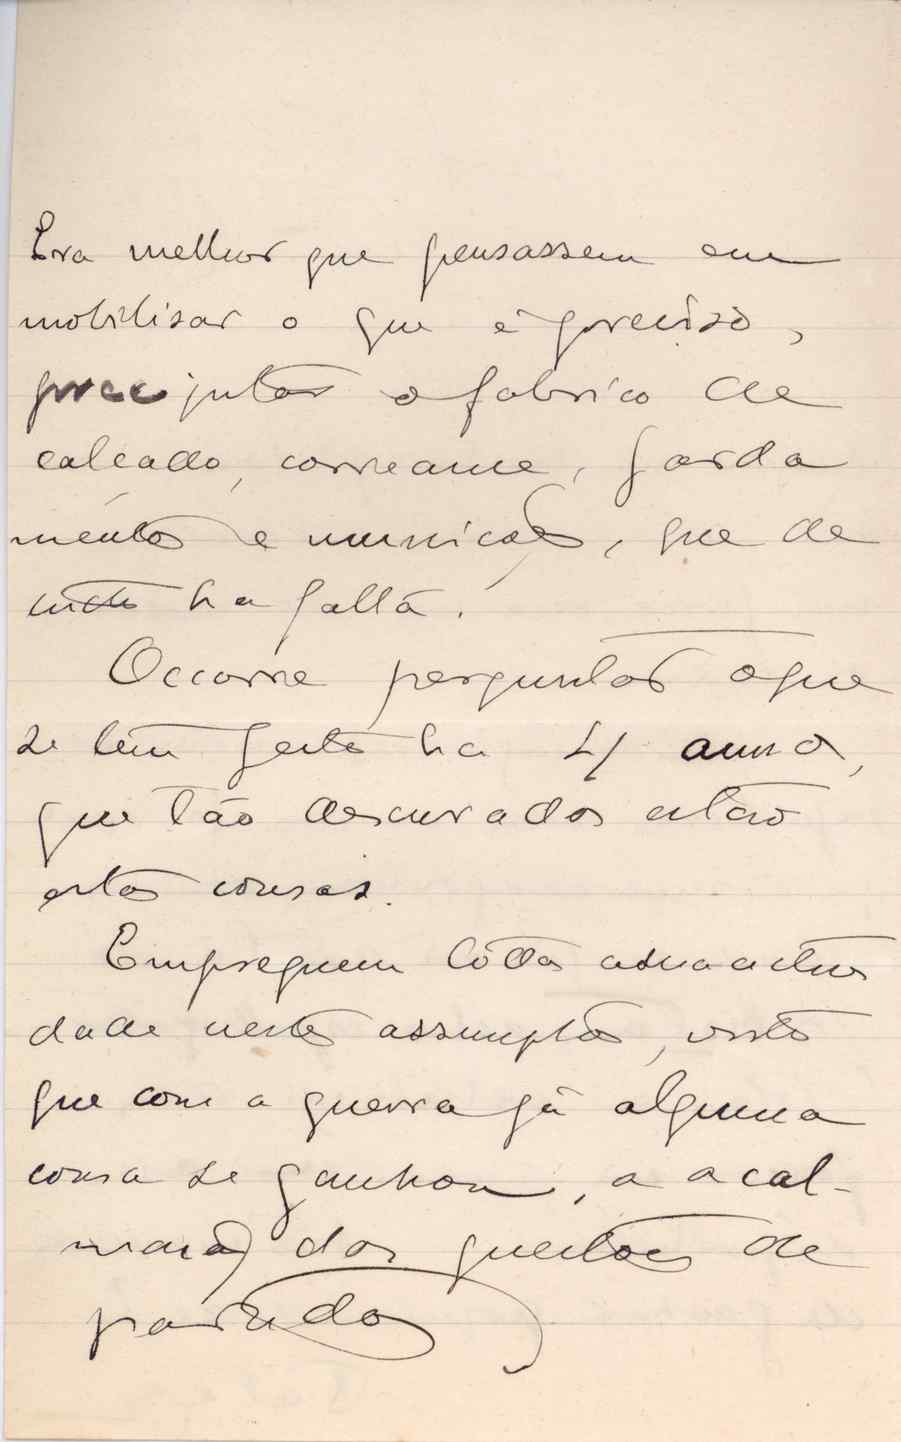 Era melhor que pensassem em
mobilisar o que é preciso,
precipitar o fabrico de
calçado, correame, farda
mentos e munições, que de
tudo ha falta.
Occorre perguntar o que
se tem feito ha 4 annos,
que tão descurados estão
estas cousas.
Empreguem toda a sua activi
dade neste assumpto, visto
que com a guerra já alguma
cousa se ganhou, a acal-
mação das questões de
partidos